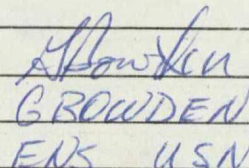 GBOWDEN
ENS USN